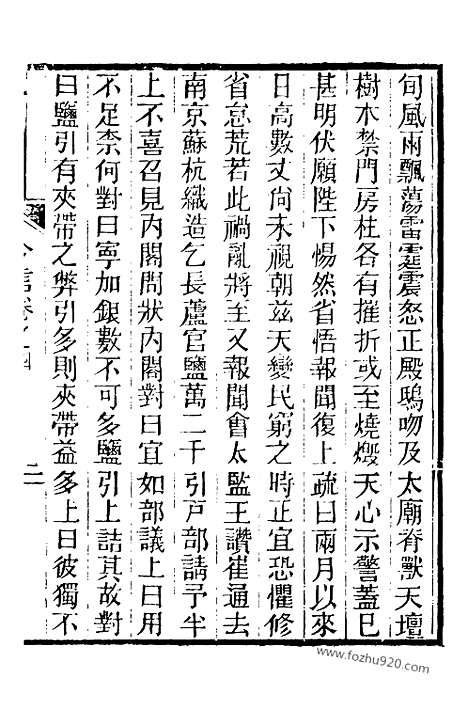 旬風雨飄蕩雷霆震怒正殿鴟吻及太廟脊獸天壇
樹木禁門房柱各有摧折或至燒燬天心示警蓋已
甚明伏願陛下惕然省悟報聞復上疏曰兩月以來
日高數丈尚未視朝兹天變民窮之時正宜恐懼修
省怠荒若此禍亂將至又報聞會太監王讚崔通去
南京蘇杭織造乞長蘆官鹽萬二千引戸部請予半
上不喜召見内閣問狀内閣對曰宜如部議上曰用
不足柰何對曰寧加銀數不可多鹽引上詰其故對
曰鹽引有夾帶之弊引多則夾帶益多上曰彼獨不
今言卷之四
二
www.fozhu920.com